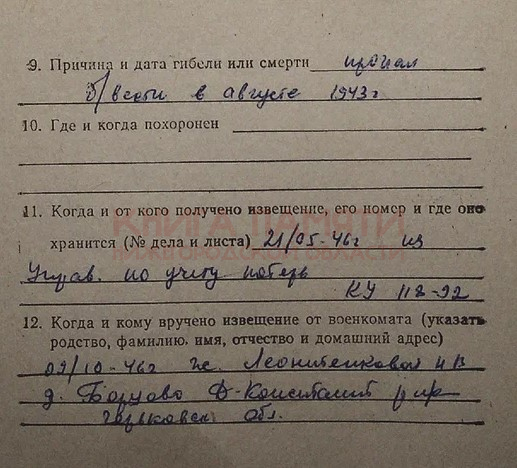 9. Причина и дата гибели или смерти пропал
б/вести в августе 1943г
10. Где и когда похоронен
КНИГА ПАМЯТИ
НИЖЕГОРОДСКОЙ ОБЛАСТИ
11. Когда и от кого получено извещение, его номер и где оно
хранится (№ дела и листа) 21/05-46г из
Управ. по учету потерь
КУ 118-92
12. Когда и кому вручено извещение от военкомата (указать
родство, фамилию, имя, отчество и домашний адрес)
09/10-46г
д. Борцово Д-Константин
Горьковск обл.